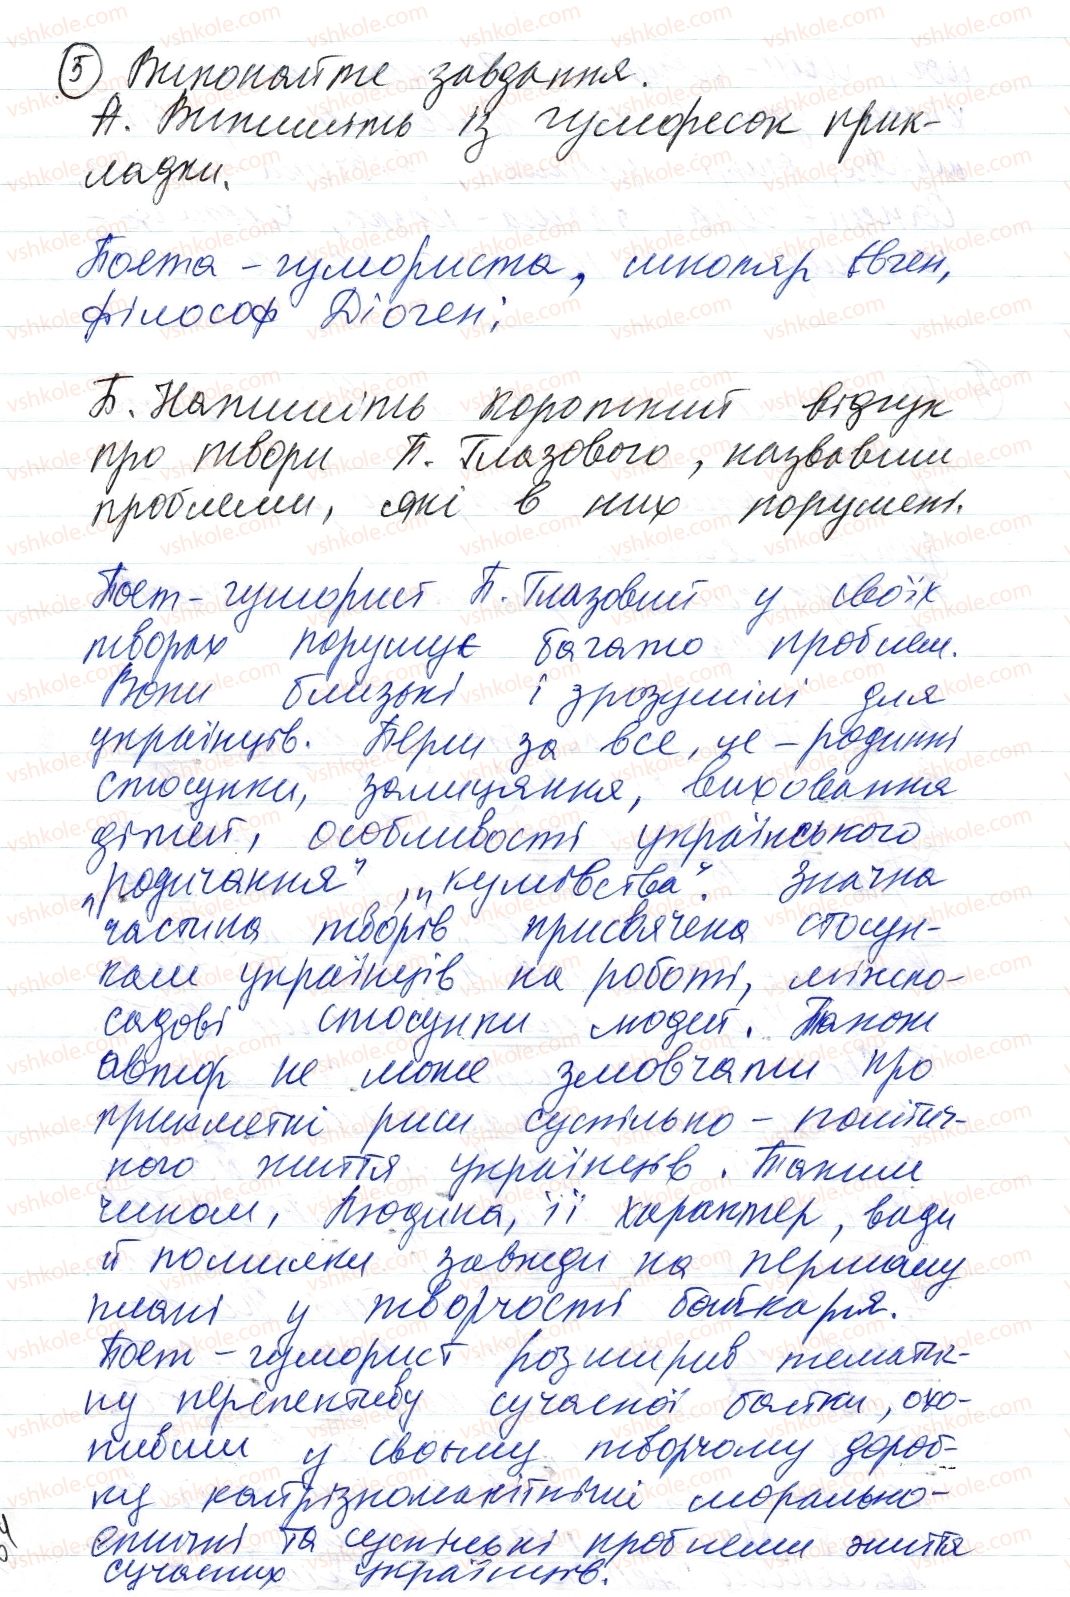 5 Виконайте завдання.
А. Випишіть із гуморесок прик-
ладки.
Поета-гумориста, школяр Євген,
філософ Діоген;
Б. Напишіть короткий відгук
про твори П. Глазового, назвавши
проблеми, які в них порушені.
Поет-гуморист П. Глазовий у своїх
творах порушує багато проблем.
Вони близькі і зрозумілі для
українців. Перш за все, це - родинні
стосунки, залицяння, виховання
дітей, особливості українського
„родичання", „кумівства". Значна
частина творів присвячена стосун-
кам українців на роботі, міжпо-
садові стосунки людей. Також
автор не може змовчати про
прикметні риси суспільно-політич-
ного життя українців. Таким
чином, Людина, її характер, вади
й помилки завжди на першому
плані у творчості байкаря.
Поет-гуморист розширив тематич-
ну перспективу сучасної байки, охо-
пивши у своєму творчому дороб-
ку найрізноманітніші морально-
етичні та суспільні проблеми життя
сучасних українців.